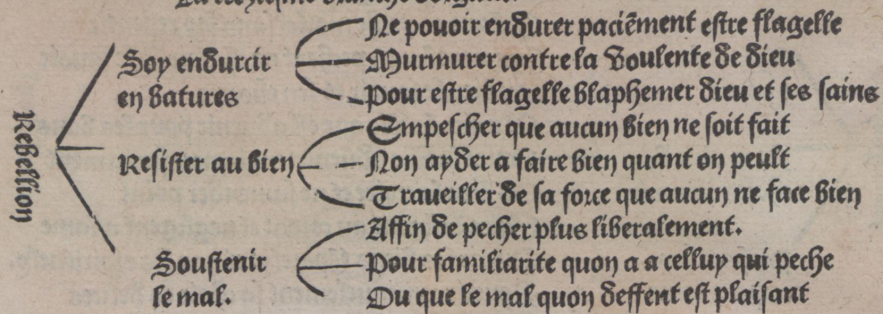 Rebellion
Soy endurcir
en batures
Ne pouoir endurer paciẽment estre flagelle
Murmurer contre la voulente de dieu
Pour estre flagelle blaphemer dieu et ses sains
Resister au bien
Empescher que aucun bien ne soit fait
Non ayder a faire bien quant on peult
Traueiller de sa force que aucun ne face bien
Soustenir
le mal.
Affin de pecher plus liberalement.
Pour familiarite quon a a celluy qui peche
Ou que le mal quon deffent est plaisant